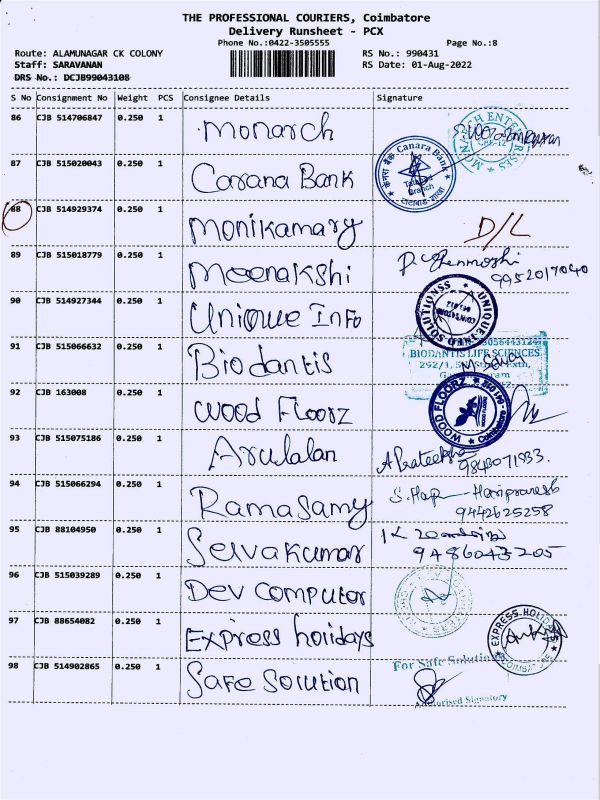 THE PROFESSIONAL COURIERS, Coimbatore
Delivery Runsheet - PCX
Phone No.:0422-3505555 Page No.:8
Route: ALAMUNAGAR CK COLONY RS No.: 990431
Staff: SARAVANAN RS Date: 01-Aug-2022
DRS No.: DCJB99043108
S No Consignment No Weight PCS Consignee Details Signature
86 CJB 514706847 0.250 1 Monarch
MONARCH ENTERPRISES
CBE-12
87 CJB 515020043 0.250 1 Carana Bank
केनरा बैंक Canara Bank
Tatabad
Branch
88 CJB 514929374 0.250 1 Monikamary D/L
89 CJB 515018779 0.250 1 Meenakshi
9952017040
90 CJB 514927344 0.250 1 Unique Info
91 CJB 515066632 0.250 1 Biodantis
8056443124
BIODANTIS LIFE SCIENCES
92 CJB 163008 0.250 1 Wood Floorz
WOOD FLOORZ
Coimbatore
93 CJB 515075186 0.250 1 Arulalan
9843071533.
94 CJB 515066294 0.250 1 Ramasamy
9442625258
95 CJB 88104950 0.250 1 Selvakumar
9486043205
96 CJB 515039289 0.250 1 Dev Computer
97 CJB 88654082 0.250 1 Express holidays
EXPRESS HOLIDAYS
COIMBATORE
98 CJB 514902865 0.250 1 Safe Solution
For Safe Solution
Authorised Signatory